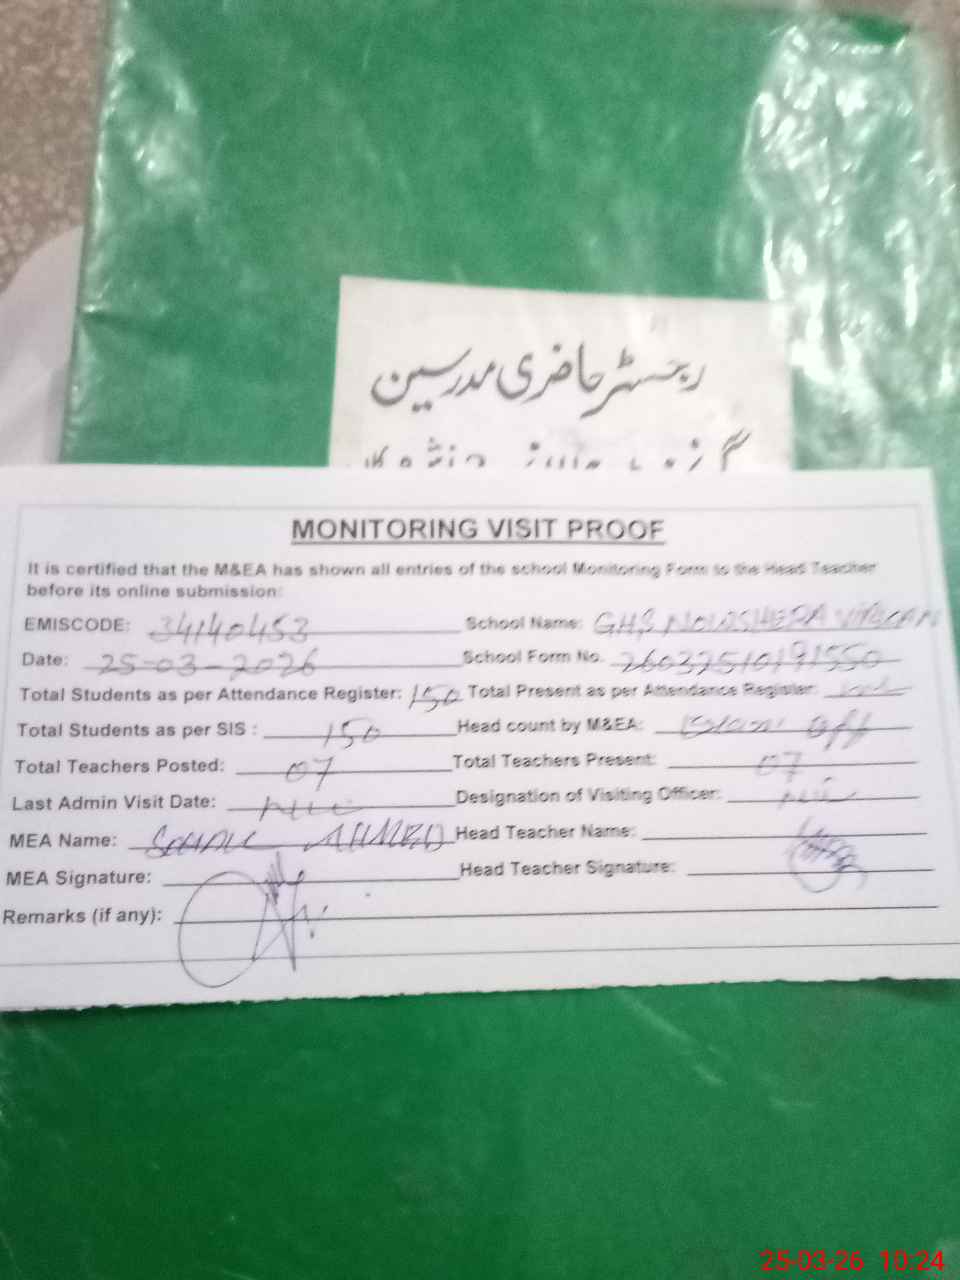 رجسٹر حاضری مدرسین
MONITORING VISIT PROOF
It is certified that the M&EA has shown all entries of the school Monitoring Form to the Head Teacher
before its online submission:
EMISCODE: 34140453 School Name: GHS NOWSHERA VIRKAN
Date: 25-03-2026 School Form No.
Total Students as per Attendance Register: 150 Total Present as per Attendance Register:
Total Students as per SIS : 150 Head count by M&EA: off
Total Teachers Posted: 07 Total Teachers Present: 07
Last Admin Visit Date: Nil Designation of Visiting Officer: Nil
MEA Name: SOHAIL AHMED Head Teacher Name:
MEA Signature: Head Teacher Signature:
Remarks (if any):
25-03-26 10:24